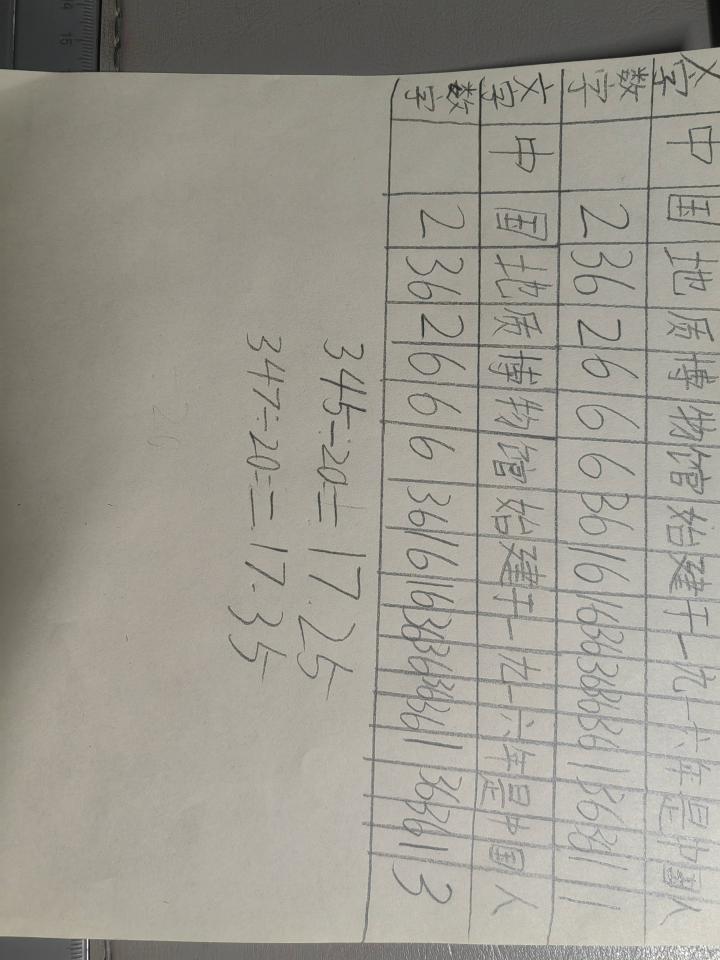 文字 中 国 地 质 博 物 馆 始 建 于 一 九 一 六 年 是 中 国 人
数字 2 36 2 6 6 6 36 16 16 36 36 36 36 1 36 36 1 1
文字 中 国 地 质 博 物 馆 始 建 于 一 九 一 六 年 是 中 国 人
数字 2 36 2 6 6 6 36 16 16 36 36 36 36 1 36 36 1 3
345÷20=17.25
347÷20=17.35
15